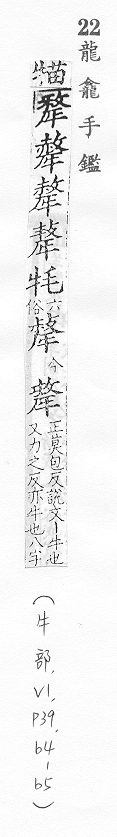 22 龍龕手鑑
牦六俗 今 犛正莫包反說文丨牛也
又力之反亦牛也八字
(牛部, V1, P39, b4-b5)